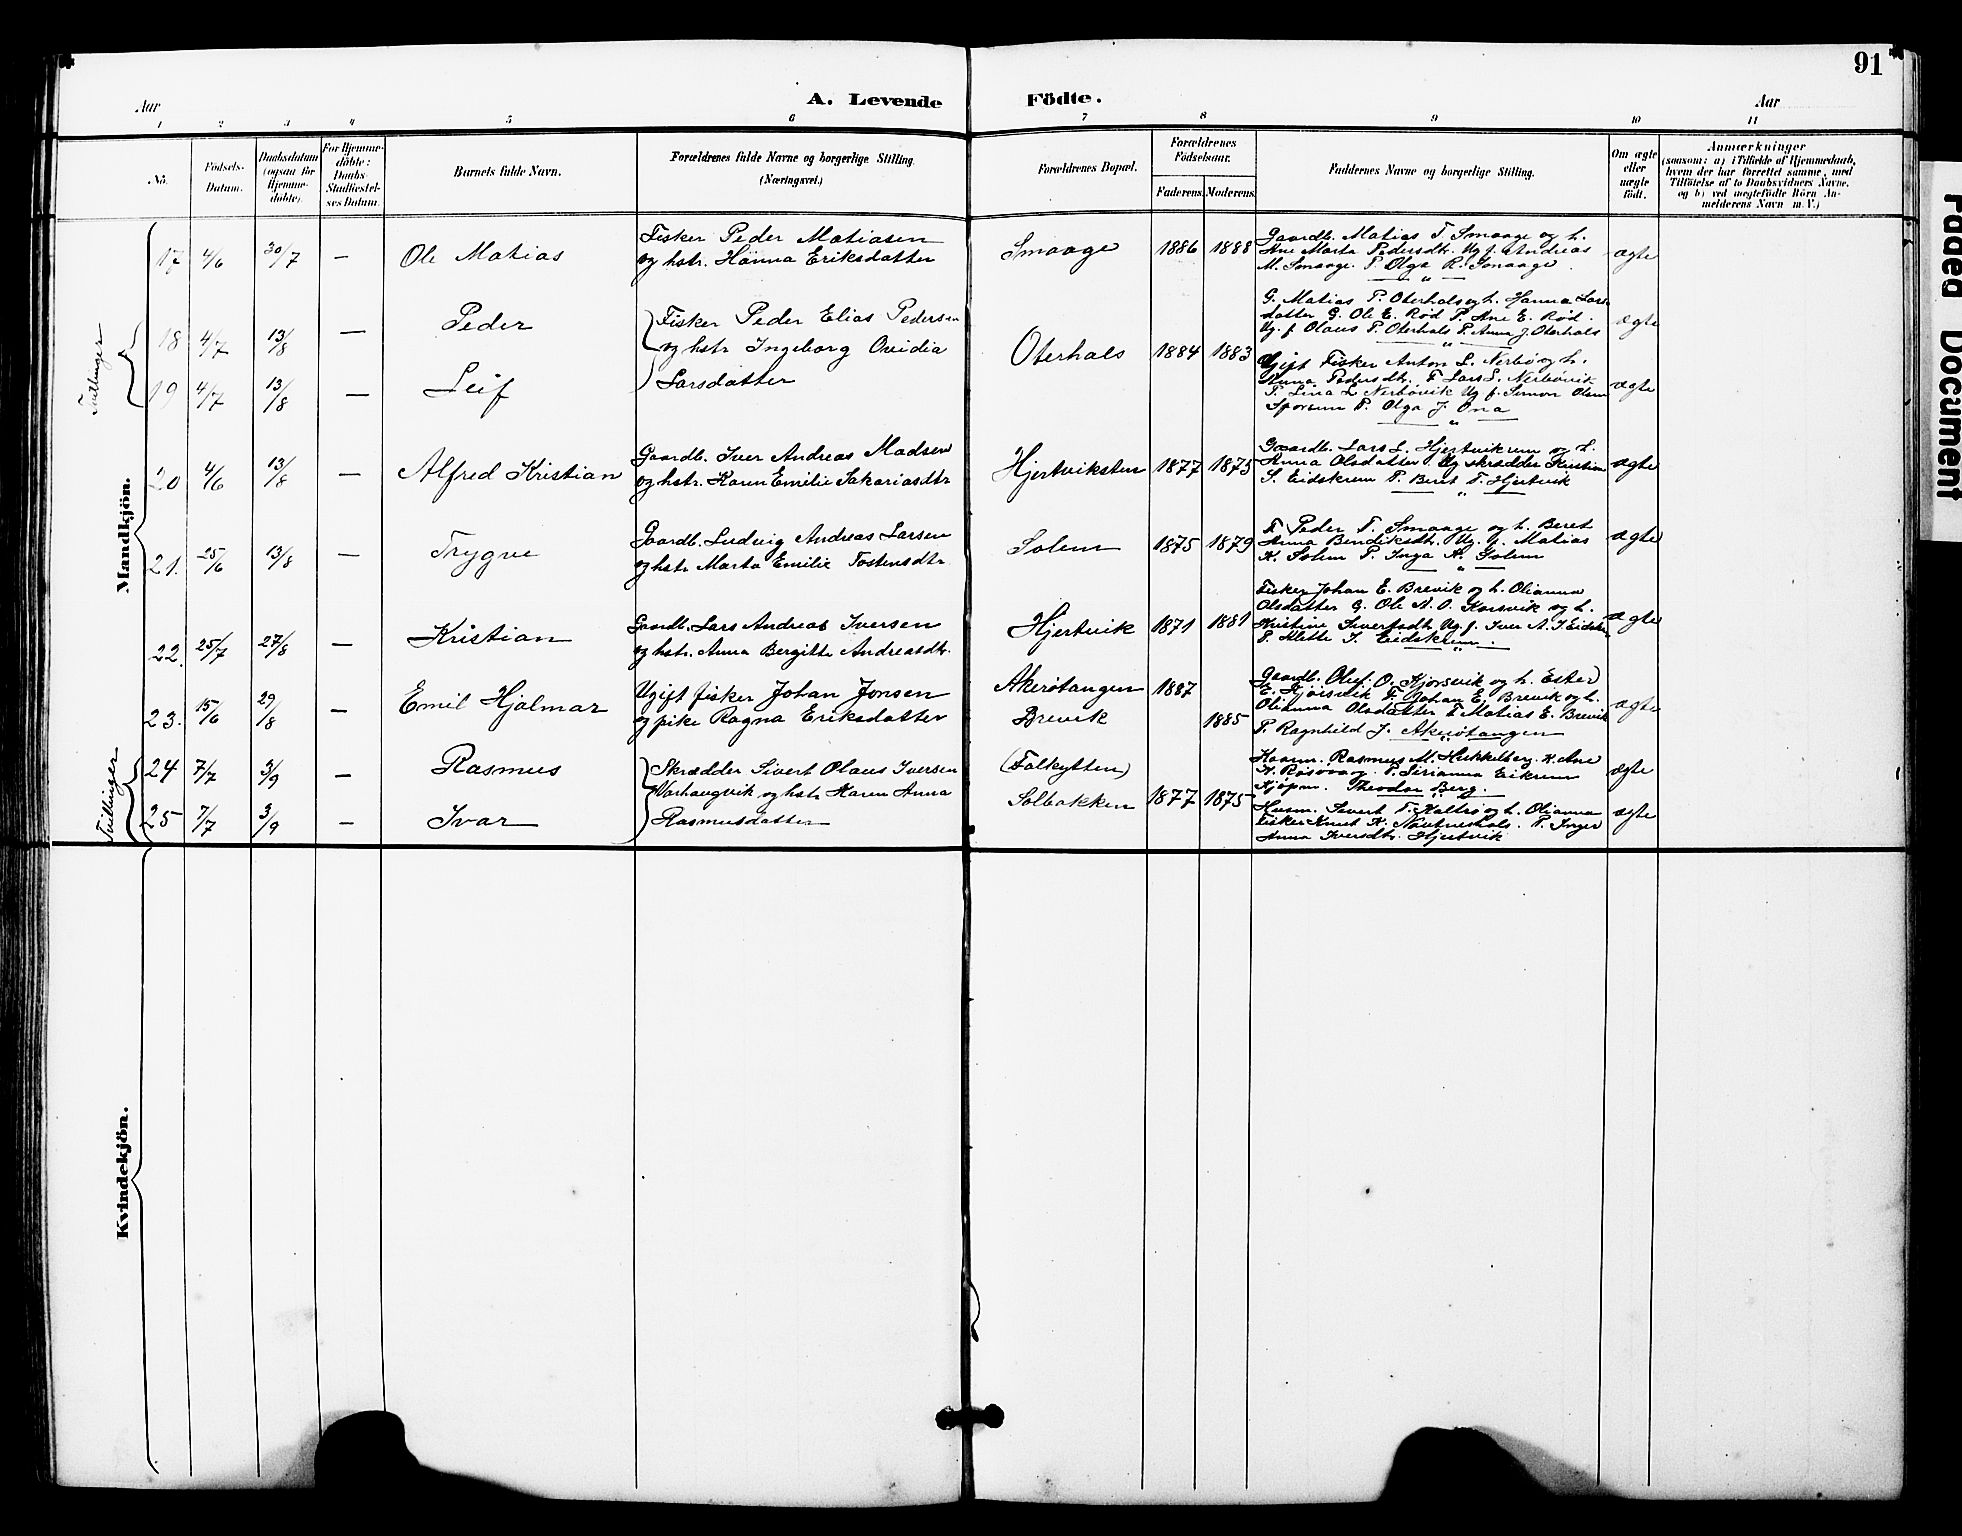 91
Aar
A. Levende Födte.
Aar
1 2 3 4 5 6 7 8 9 10 11
No.
Födsels-
Datum.
Daabsdatum
(ogsaa for
Hjemme-
döbte).
For Hjemme-
döbte:
Daabs-
Stadfæstel-
ses Datum.
Barnets fulde Navn.
Forældrenes fulde Navne og borgerlige Stilling.
(Næringsvei.)
Forældrenes Bopæl.
Forældrenes
Födselsaar.
Faderens. Moderens.
Faddernes Navne og borgerlige Stilling.
Om ægte
eller
uægte
födt.
Anmærkninger
(saasom: a) i Tilfælde af Hjemmedaab,
hvem der har forrettet samme, med
Tilföielse af to Daabsvidners Navne,
og b) ved uægtefödte Börn An-
melderens Navn m. V.)
Mandkjön.
17 4/6 30/7 — Ole Matias
Fisker Peder Matiasen
og hstr. Hanna Eriksdatter
Smaage 1886 1888
Gaardb. Matias T. Smaage og h.
Ane Marta Pedersdtr. Ug f. Andreas
M. Smaage. P. Olga R. Smaage.
ægte
Tvillinger
18 4/7 13/8 — Peder
19 4/7 13/8 — Leif
Fisker Peder Elias Pedersen
og hstr Ingeborg Ovidia
Larsdatter
Oterhals 1884 1883
G. Matias P. Oterhals og h. Hanna Lars-
datter G. Ole E. Rød P. Ane E. Rød.
Ug. f Olaus P. Oterhals P. Anna J. Oterhals
ægte
Ugift Fisker Anton L. Nerbø og h.
Anna Pedersdtr. F Lars L. Nerbøvik
P. Lina L Nerbøvik Ug f. Simon Olsen
Sporsem P. Olga J. Ona
ægte
20 4/6 13/8 — Alfred Kristian
Gaardb. Iver Andreas Madsen
og hstr. Karen Emilie Sakariasdtr
Hjertviksten 1877 1875
Gaardb. Lars L. Hjertvikrem og h.
Anna Olsdatter Ug skrædder Kristian
S. Eidskrem P. Beret T. Hjertvik
ægte
21. 25/6 13/8 — Trygve
Gaardb. Ludvig Andreas Larsen
og hstr Marta Emilie Tostensdtr.
Solem 1875 1879
F. Peder T. Smaage og h. Beret
Anna Bendiksdtr. Ug. f. Matias
K. Solem P. Inga K. Solem
ægte
22. 25/7 27/8 — Kristian
Gaardb. Lars Andreas Iversen
og hstr. Anna Bergitte Andreasdtr.
Hjertvik 1871 1881
Fisker Johan E. Brevik og h. Olianna
Olsdatter G. Ole A. O. Korsvik og h.
Kristine Sivertsdtr Ug. f. Iver A. I Eidskr
P. Mette I. Eidskrem
ægte
23. 15/6 29/8 — Emil Hjalmar
Ugift fisker Johan Jonsen
og pike Ragna Eriksdatter
Akerøtangen 1887
Brevik 1885
Gaardb. Oluf O. Kjørsvik og h. Ester
E. Kjørsvik F. Johan E. Brevik og h.
Olianna Olsdatter F Matias E. Brevik
P. Ragnhild J. Akerøtangen
ægte
Tvillinger
24 7/7 3/9 — Rasmus
25 7/7 3/9 — Ivar
Skrædder Sivert Olaus Iversen
Varhaugvik og hstr Karen Anna
Rasmusdatter
(Falkytten)
Solbakken 1877 1875
Haarm. Rasmus M. Hukkelberg. K. Ane
K. Røsovaag. P. Sirianna Eikrem
Kjøpm. Theodor Berg.
ægte
Husm. Sivert T. Kaltrø og h. Olianna
Fisker Knut K. Nautneshals. P. Inger
Anna Iversdtr. Hjertvik
ægte
Kvindekjön.
Faded Document